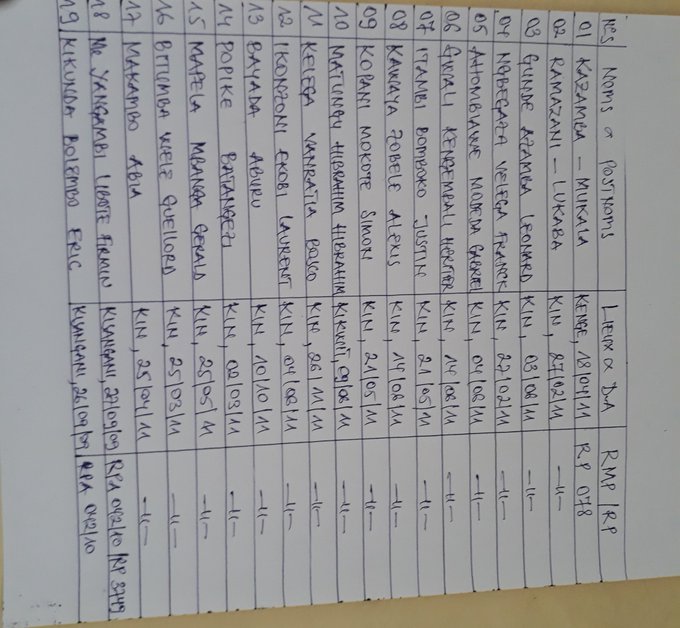 N°s NOMS & POSTNOMS LIEUX & DA RMP/RP
01 KAZAMBA - MUKALA KENGE, 18/04/11 RP 078
02 RAMAZANI - LUKABA KIN, 27/02/11 -11-
03 GUNDE AZAMBA LEONARD KIN, 03/08/11 -11-
04 NGBEGAZA VELEGA FRANCK KIN, 27/02/11 -11-
05 MOLEDA GABRIEL KIN, 04/08/11 -11-
06 GWALI KENGEMBALI HECTOR KIN, 14/08/11 -11-
07 ITAMBI BOMBOKO JUSTIN KIN, 21/05/11 -11-
08 KAWAYA ZOBELE ALEXIS KIN, 14/08/11 -11-
09 KOPANI MOKOTE SIMON KIN, 21/05/11 -11-
10 MATUNGU HIBRAHIM HIBRAHIM KIKWIT, 09/08/11 -11-
11 KELEGA VANRATIA BOSCO KIN, 26/11/11 -11-
12 IKONZONI EKOBI LAURENT KIN, 04/08/11 -11-
13 BAYADA ABURU KIN, 10/10/11 -11-
14 POPIKE BATANGEZI KIN, 02/09/11 -11-
15 MAPELA MBANGA GERALD KIN, 25/05/11 -11-
16 BITUMBA WELE GUELLORD KIN, 25/03/11 -11-
17 MAKAMBO ABIA KIN, 25/04/11 -11-
18 Me YANGAMBI LIBOTE FIRMIN KISANGANI, 27/09/09 RPA 042/10/RP 3749
19 KIKUNDA BOLEMBO ERIC KISANGANI, 26/09/09 RPA 042/10